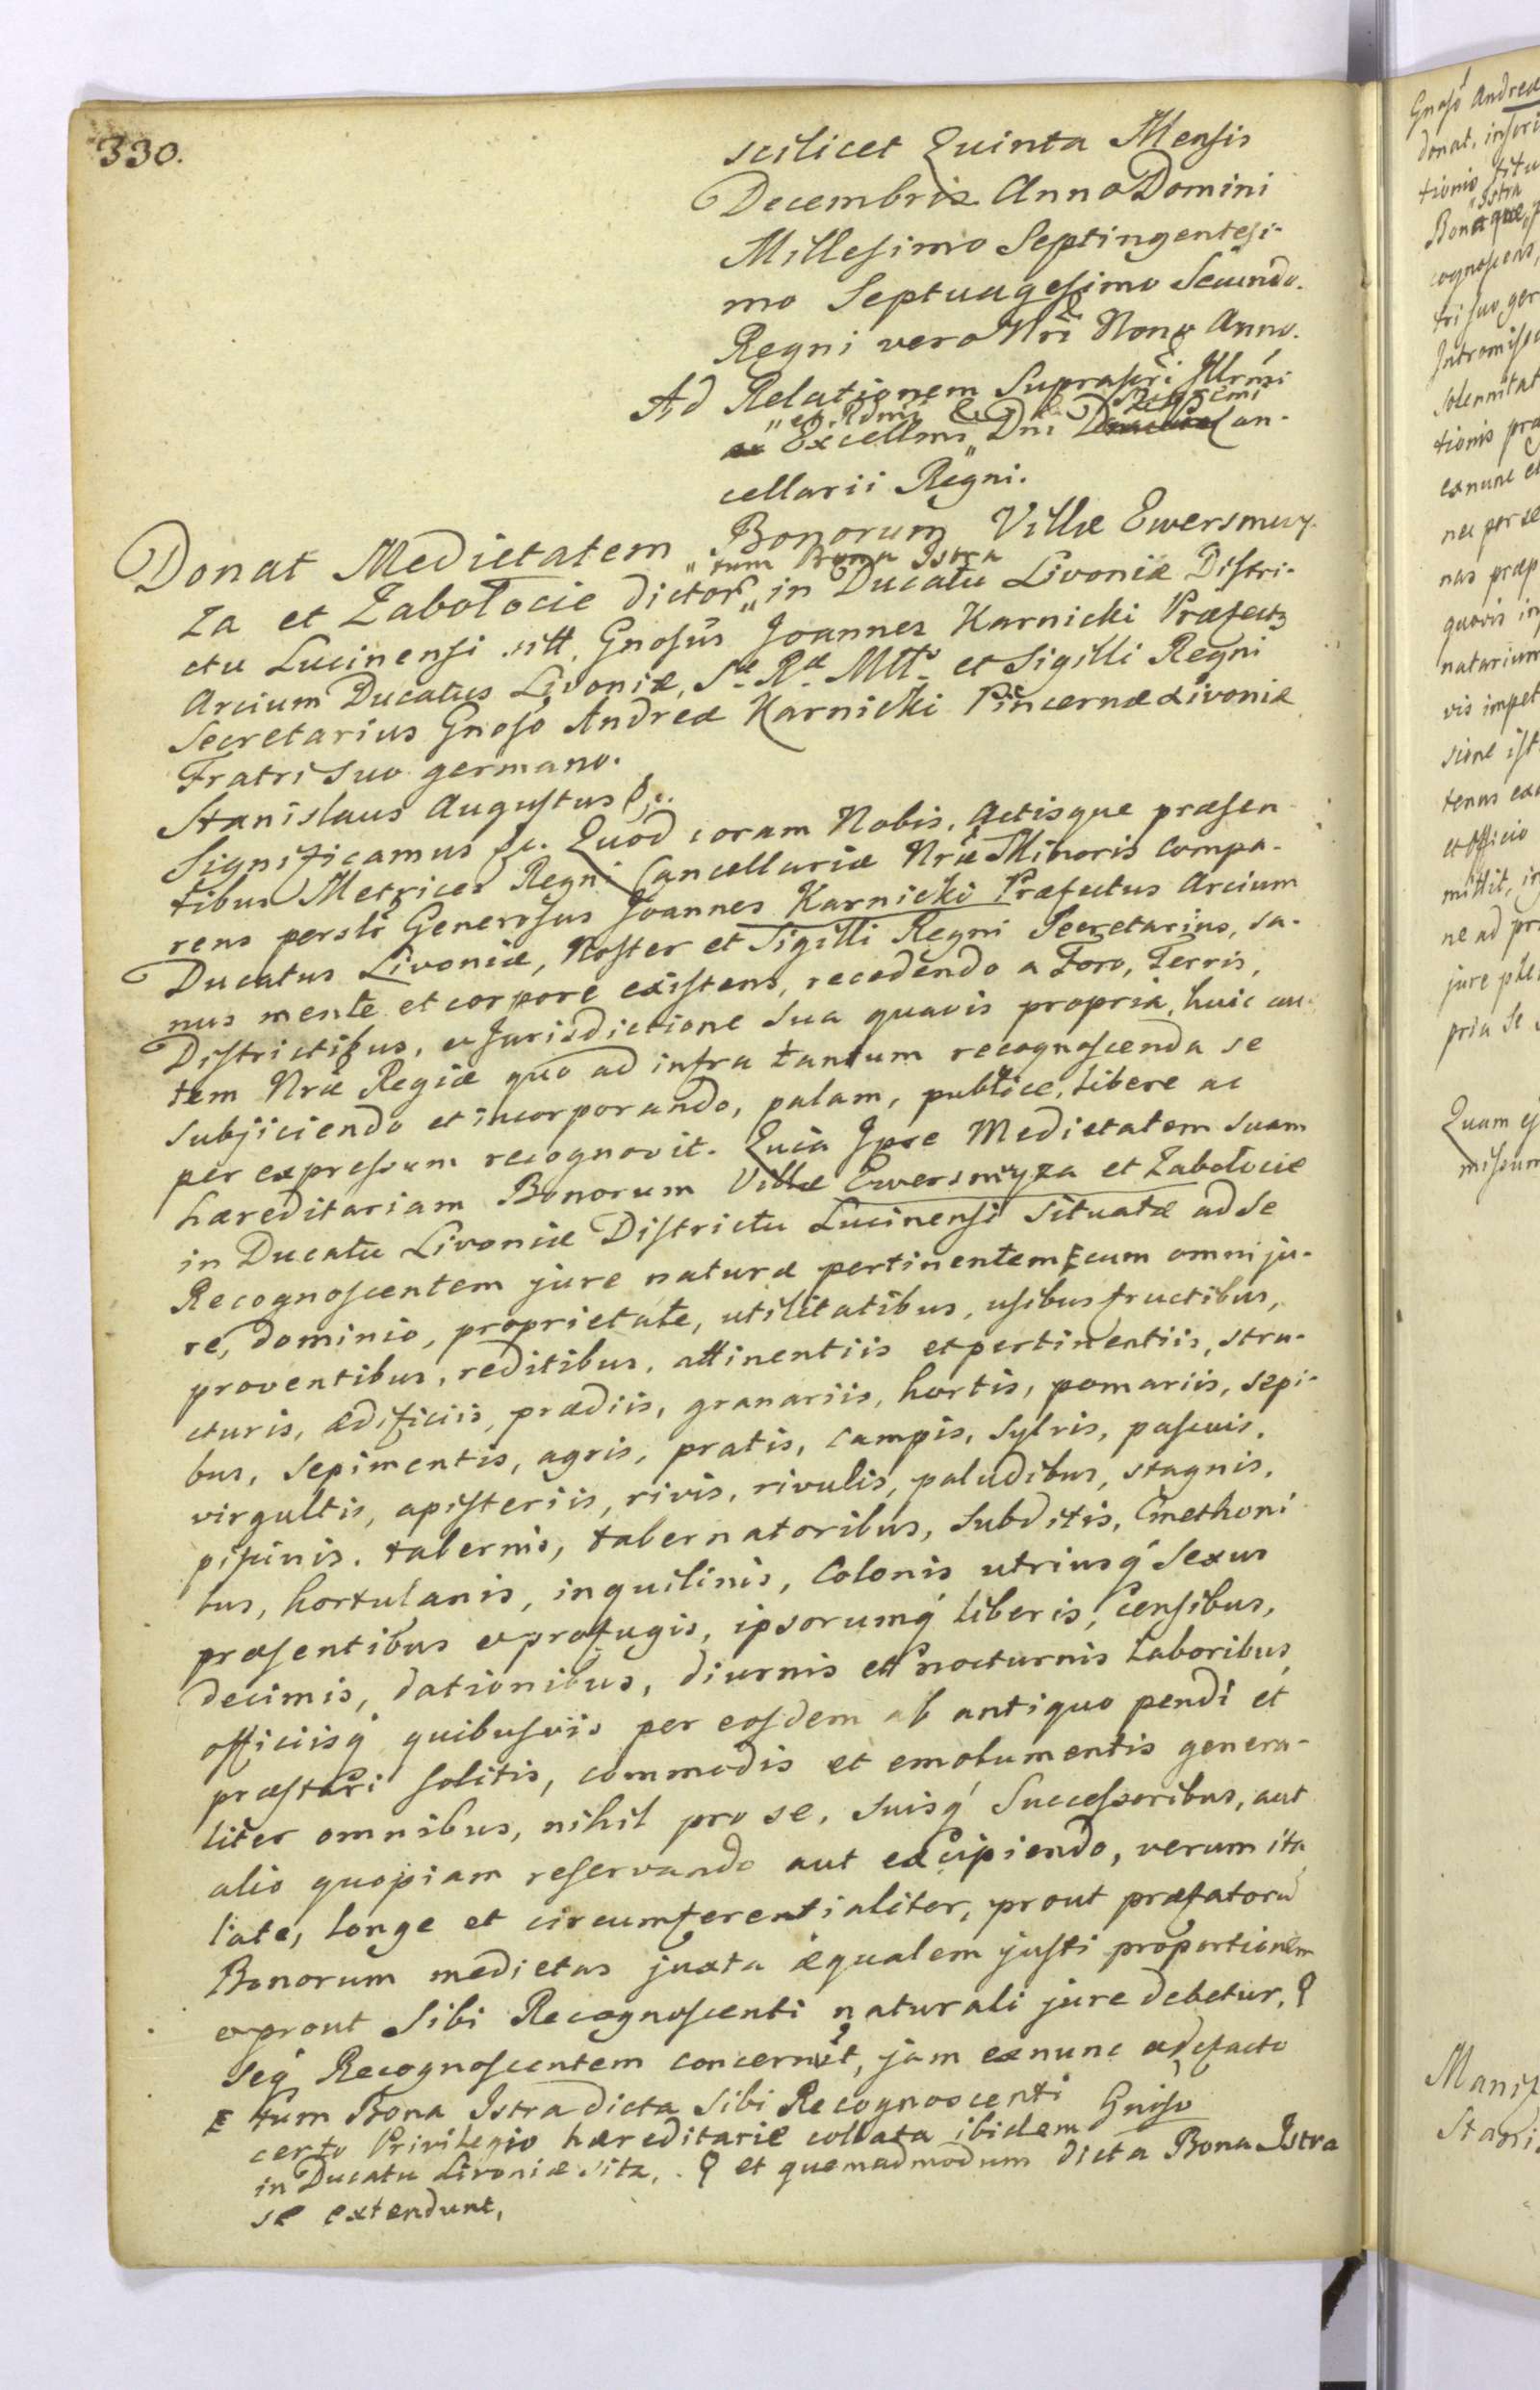 330.
scilicet Quinta Mensis
Decembris Anno Domini
Millesimo Septingentesi-
mo Septuagesimo Secundo.
Regni vero Nri Nono Anno.
Ad Relationem Suprascri Illrmi
"et Rdmi" Supremi
Excellmi" Dni Can-
cellarii Regni.
Donat Medietatem Bonorum Villæ Ewersmuy-
"tum Bona Istra
za et Zabołocie dictor" in Ducatu Livoniæ Distri-
ctu Lucinensi sitt. Gnosus Joannes Karnicki Præfectus
Arcium Ducatus Livoniæ, Sæ Ræ Mttis et Sigilli Regni
Secretarius Gnoso Andreæ Karnicki Pincernæ Livoniæ
Fratri suo germano.
Stanislaus Augustus &c.
Significamus &c. Quod coram Nobis, Actisque præsen
tibus Metrices Regni Cancellariæ Nræ Minoris compa-
rens perslr Generosus Joannes Karnicki Præfectus Arcium
Ducatus Livoniæ, Noster et Sigilli Regni Secretarius, sa-
nus mente et corpore existens, recedendo a Foro, Terris,
Districtibus, et Jurisdictione sua quavis propria, huic au-
tem Nræ Regiæ quo ad infra tantum recognoscenda se
subjiciendo et incorporando, palam, publice, libere ac
per expressum recognovit. Quia Ipse Medietatem suam
hæreditariam Bonorum Villæ Ewersmuyza et Zabołocie
in Ducatu Livoniæ Districtu Lucinensi situatæ ad se
Recognoscentem jure naturæ pertinentem cum omni ju-
re, dominio, proprietate, utilitatibus, usibusfructibus,
proventibus, reditibus, attinentiis et pertinentiis, stru-
cturis, ædificiis, prædiis, granariis, hortis, pomariis, sepi-
bus, sepimentis, agris, pratis, campis, sylvis, pascuis,
virgultis, apisteriis, rivis, rivulis, paludibus, stagnis,
piscinis, tabernis, tabernatoribus, subditis, Cmethoni
bus, hortulanis, inquilinis, Colonis utriusq́ Sexus
præsentibus et profugis, ipsorumq́ liberis, Censibus,
decimis, dationibus, diurnis et nocturnis Laboribus,
officiisq́ quibusvis per eosdem ab antiquo pendi et
præstari solitis, commodis et emolumentis genera-
liter omnibus, nihil pro se, suisq́ Successoribus, aut
alio quopiam reservando aut excipiendo, verum ita
late, longe et circumferentialiter, prout præfatorū
Bonorum medietas juxta æqualem justi proportionem
et prout Sibi Recognoscenti naturali jure debetur,
seq́ Recognoscentem concernit, jam exnunc et de facto
tum Bona Istra dicta Sibi Recognoscenti
certo Privilegio hæreditarie collata ibidem Gnoso
in Ducatu Livoniæ sita, . et quemadmodum dicta Bona Istra
se extendunt,
Gnoso Andreæ
donat, inscri
Istra
cognoscens,
tri suo ger
Intromiss
solennitat
tionis præ
exnunc et
nec per se
nas præp
quovis in
natarium
vis impet
sione ist
tenus
et officio
mittit, in
ne ad pr
pria se
Quam ej
missum
Manif
Stani